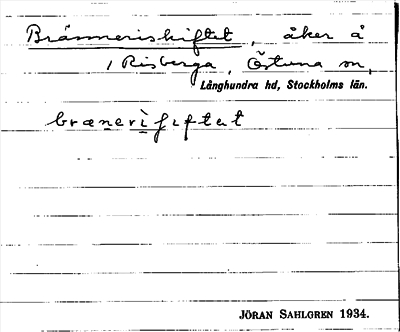 Brännneriskiftet, åker å
/ Risberga, Östuna sn,
Långhundra hd, Stockholms län.
brænerìʃıftət
JÖRAN SAHLGREN 1934.